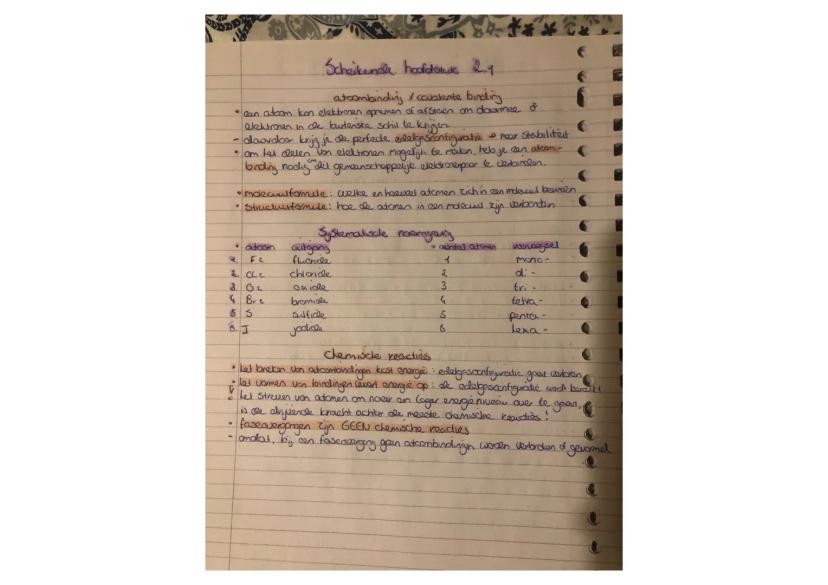 Scheikunde hoofdstuk 2.1
atoombinding / covalente binding
• een atoom kan elektronen opnemen of afstaan om daarmee 8
elektronen in de buitenste schil te krijgen.
- daardoor krijg je de perfecte edelgasconfiguratie → naar stabiliteit
• om het delen van elektronen mogelijk te maken, heb je een atoom-
binding nodig om dit gemeenschappelijke elektronenpaar te verbinden.
• molecuulformule: welke en hoeveel atomen zich in een molecuul bevinden
• structuurformule: hoe de atomen in een molecuul zijn verbonden
Systematische naamgeving
• atoom uitgang • aantal atomen voorvoegsel
1. F₂ fluoride 1 mono-
2. CL₂ chloride 2 di-
3. O₂ oxide 3 tri-
4 Br₂ bromide 4 tetra-
5 S sulfide 5 penta-
6. I jodide 6 hexa-
Chemische reacties
• het breken van atoombindingen kost energie: edelgasconfiguratie gaat verloren
• het vormen van bindingen levert energie op: de edelgasconfiguratie wordt bereikt
het streven van atomen om naar een lager energieniveau over te gaan,
is de drijvende kracht achter de meeste chemische reacties!
• faseovergangen zijn GEEN chemische reacties
- omdat, bij een faseovergang geen atoombindingen worden verbroken of gevormd